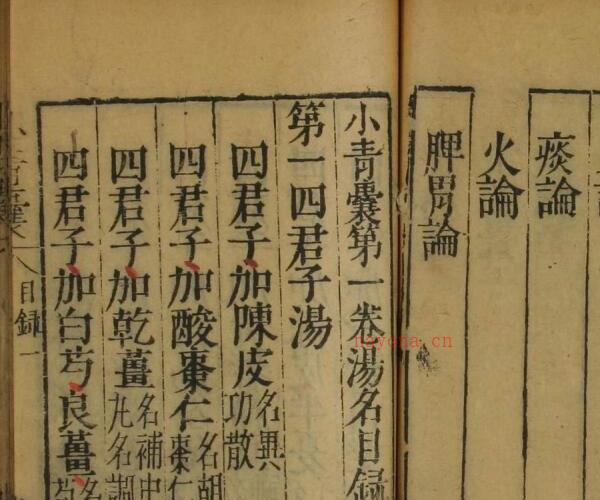 痰論
火論
脾胃論
小青囊第一卷湯名目録
第一四君子湯
四君子加陳皮名異功散
四君子加酸棗仁名胡棗仁
四君子加乾薑名補中丸名調
四君子加白芍良薑名芍
小青囊
目録一
nayona.cn